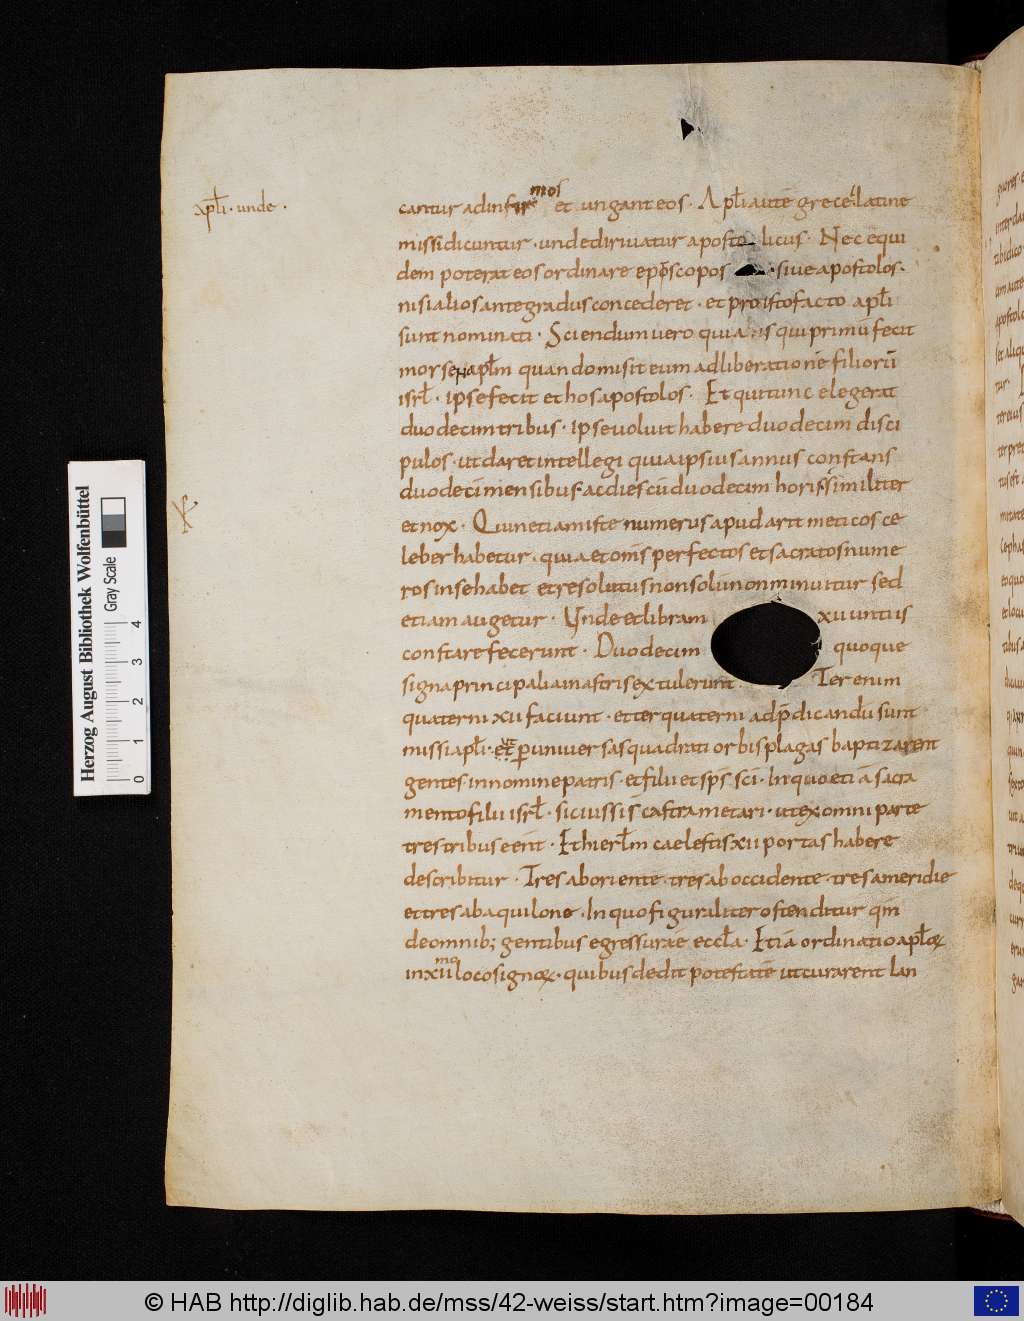 apl̄i · unde ·
cantur ad infirmos et ungant eos · Apl̄i autē grece latine
missi dicuntur · unde dirivatur aposto licus · Nec equi
dem poterat eos ordinare episcopos sive apostolos ·
nisi alios ante gradus concederet · et pro isto facto apl̄i
sunt nominati · Sciendum vero quia is qui primū fecit
mosen apl̄m quando misit eum ad liberationē filiorū
isrl̄ · ipse fecit et hos apostolos · Et qui tunc elegerat
duodecim tribus · ipse voluit habere duodecim disci
pulos · ut daret intellegi quia ipsius annus constans
duodecī mensibus · ac dies cū duodecim horis · similiter
et nox · Quin etiam iste numerus apud aritmeticos ce
leber habetur · quia et om̄s perfectos et sacratos nume
ros in se habet et resolutus non solū non minuitur sed
etiam augetur · Unde et libram xii untiis
constare fecerunt · Duodecim quoque
signa principalia in astris extulerunt · Ter enim
quaterni xii faciunt · et ter quaterni ad p̄dicandū sunt
missi apl̄i · ut p universas quadrati orbis plagas baptizarent
gentes · in nomine patris · et filii et sp̄s sc̄i · In quo etiā sacra
mento filii isrl̄ · sic iussi s castra metari · ut ex omni parte
tres tribus eēnt · Et hierl̄m caelestis xii portas habere
describitur · Tres ab oriente · tres ab occidente · tres a meridie
et tres ab aquilone · In quo figuraliter ostenditur qm̄
de omnib; gentibus egressura ēē eccl̄a · Etiā ordinatio apl̄oꝝ
in xii mo loco signoꝝ · quibus dedit potestatē ut curarent lan
Herzog August Bibliothek Wolfenbüttel
Gray Scale
0 1 2 3 4
© HAB http://diglib.hab.de/mss/42-weiss/start.htm?image=00184